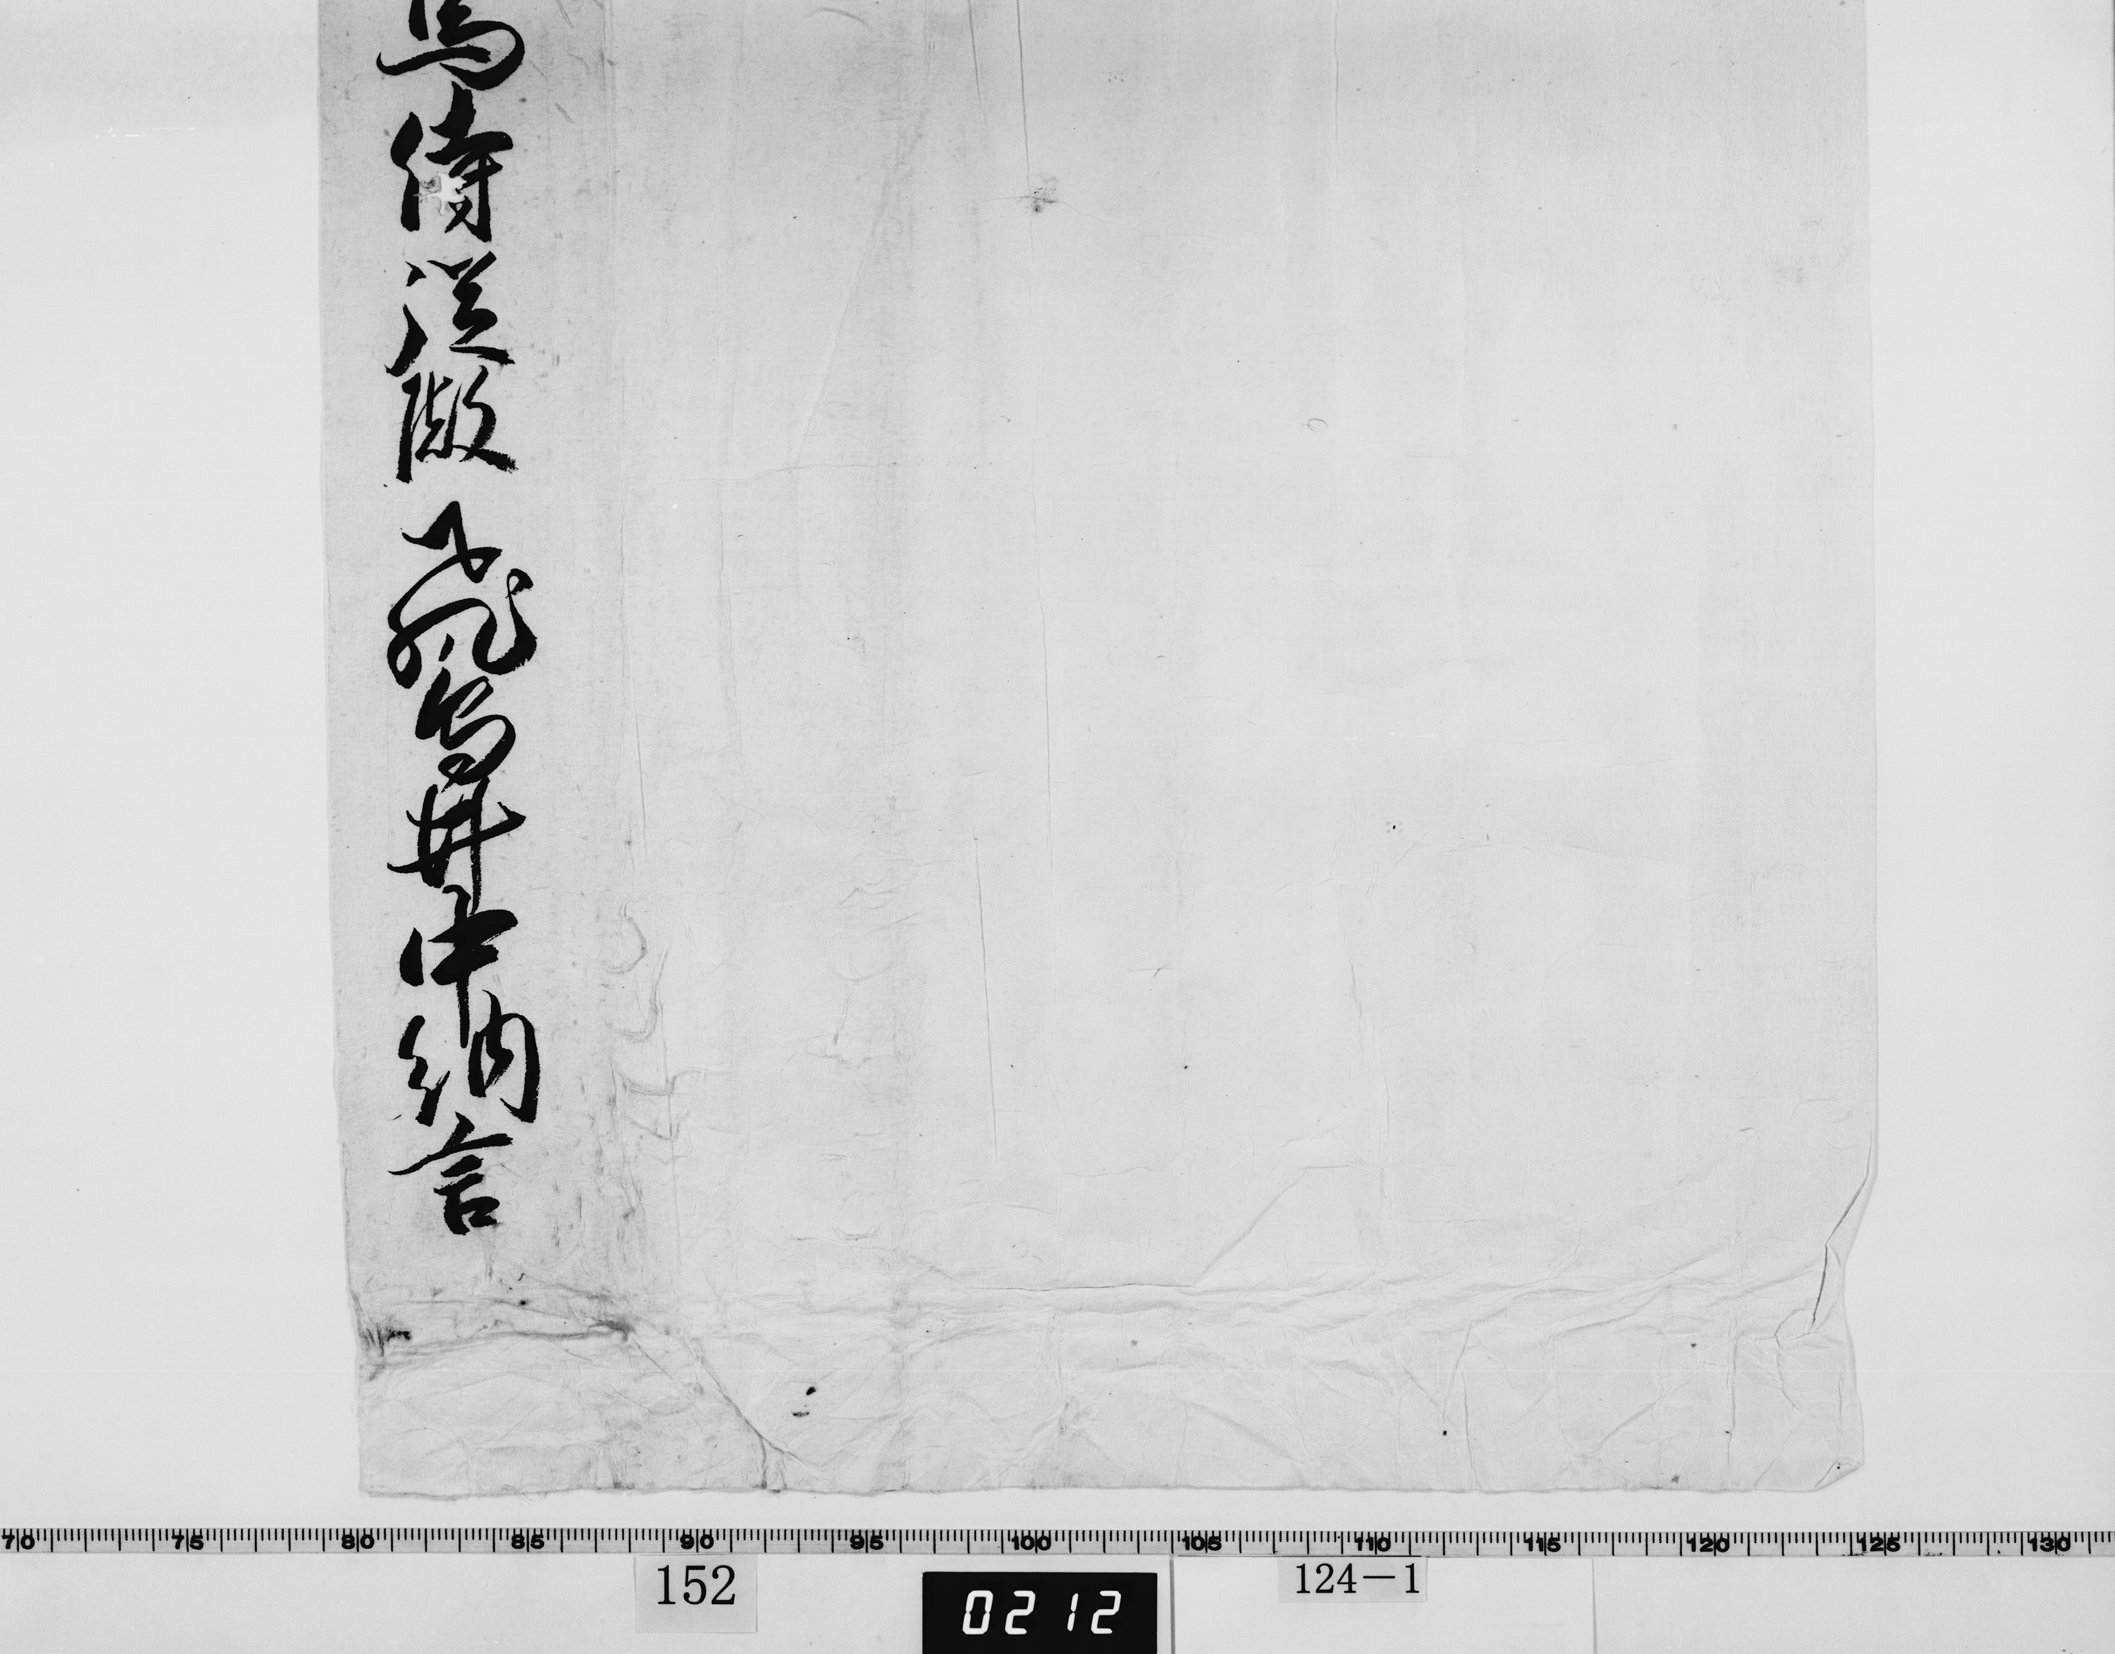 馬侍従殿飛鳥井中納言
70 75 80 85 90 95 100 105 110 115 120 125 130
152
0212
124-1